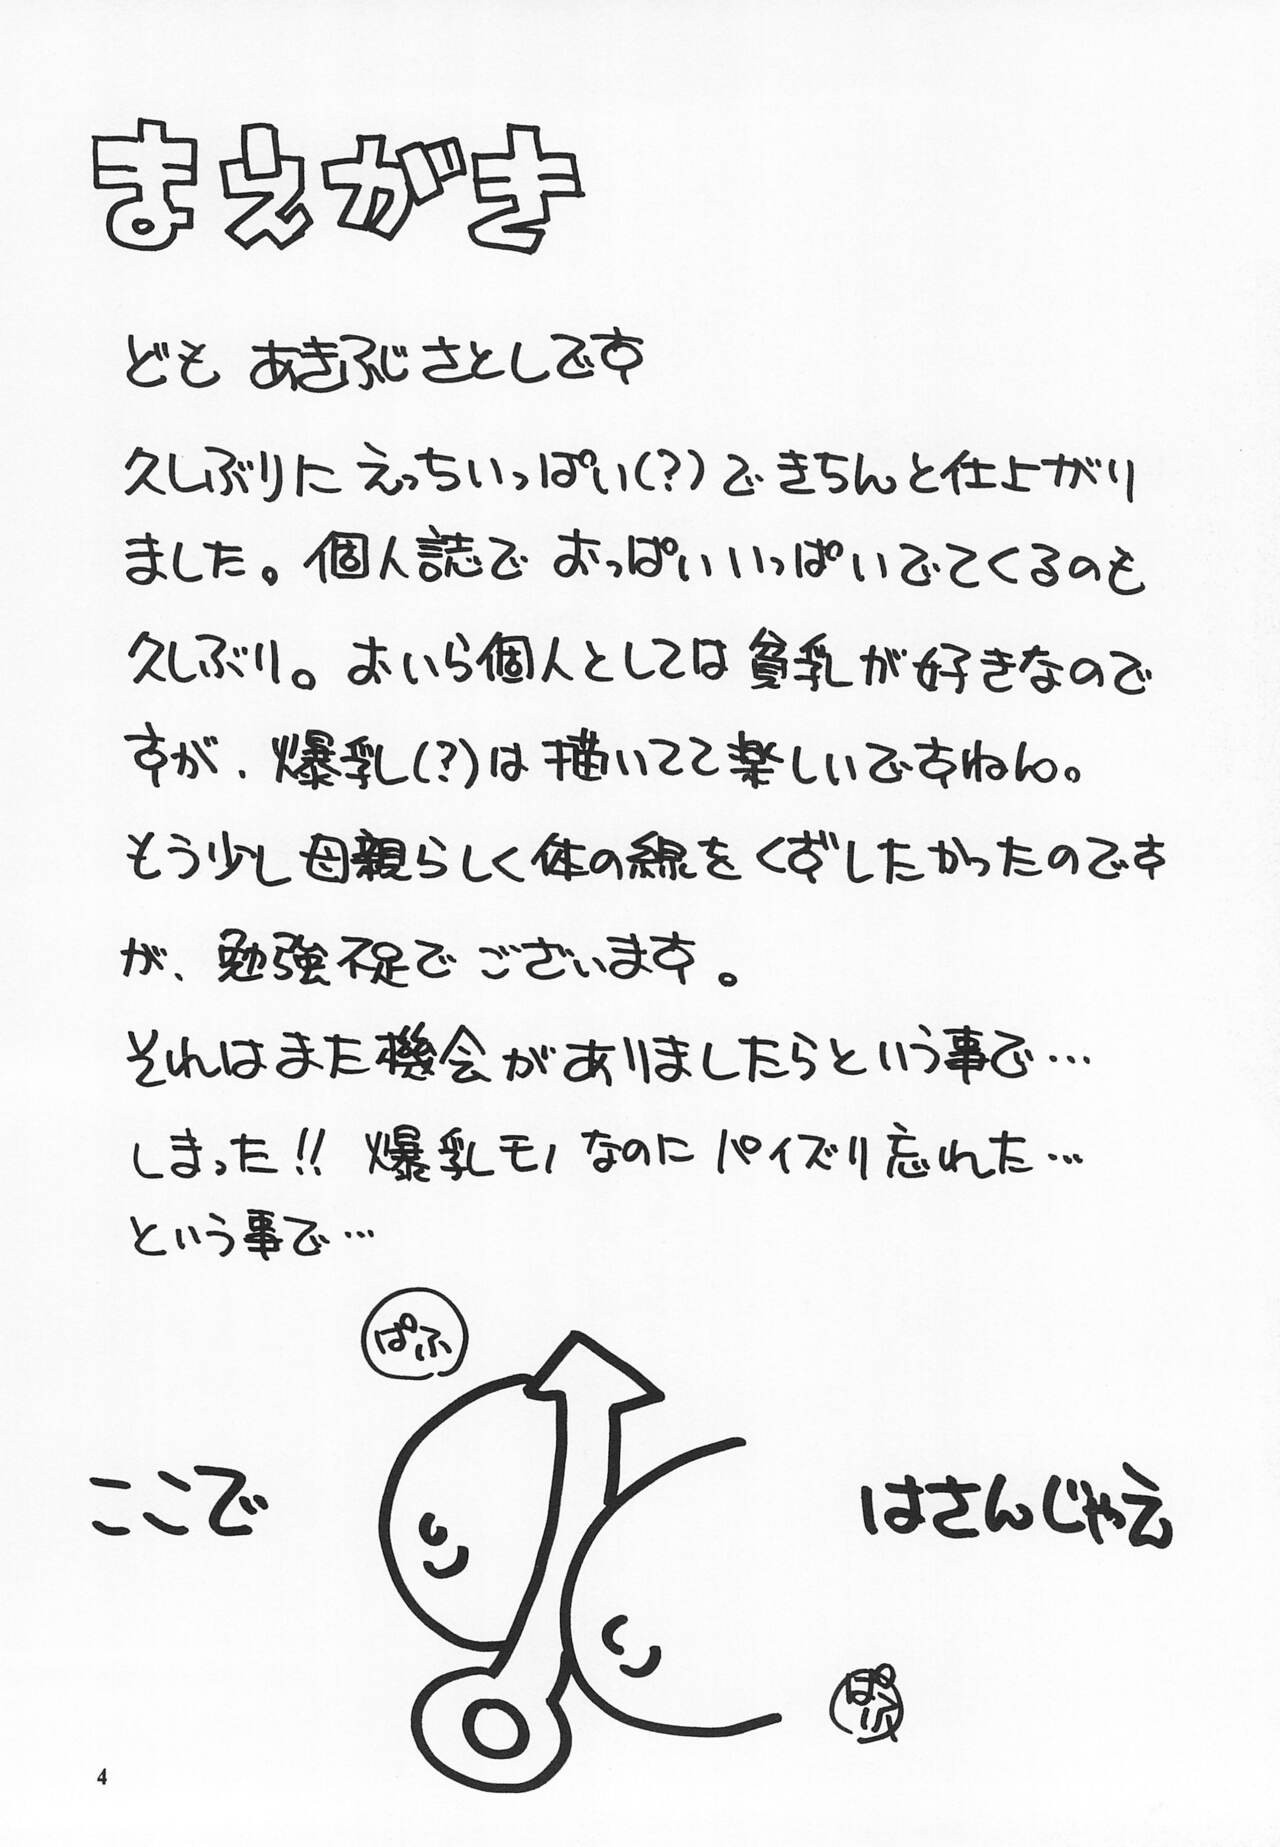 まえがき
ども あきふじさとしです
久しぶりに えっちいっぱい(?)で きちんと仕上がり
ました。個人誌で おっぱいいっぱいでてくるのも
久しぶり。おいら個人としては 貧乳が好きなので
すが、爆乳(?)は描いてて楽しいですねん。
もう少し母親らしく体の線をくずしたかったのです
が、勉強不足でございます。
それはまた機会がありましたらという事で…
しまった!! 爆乳モノなのに パイズリ忘れた…
という事で…
ぱふ
ここで
はさんじゃえ
ぱふ
4